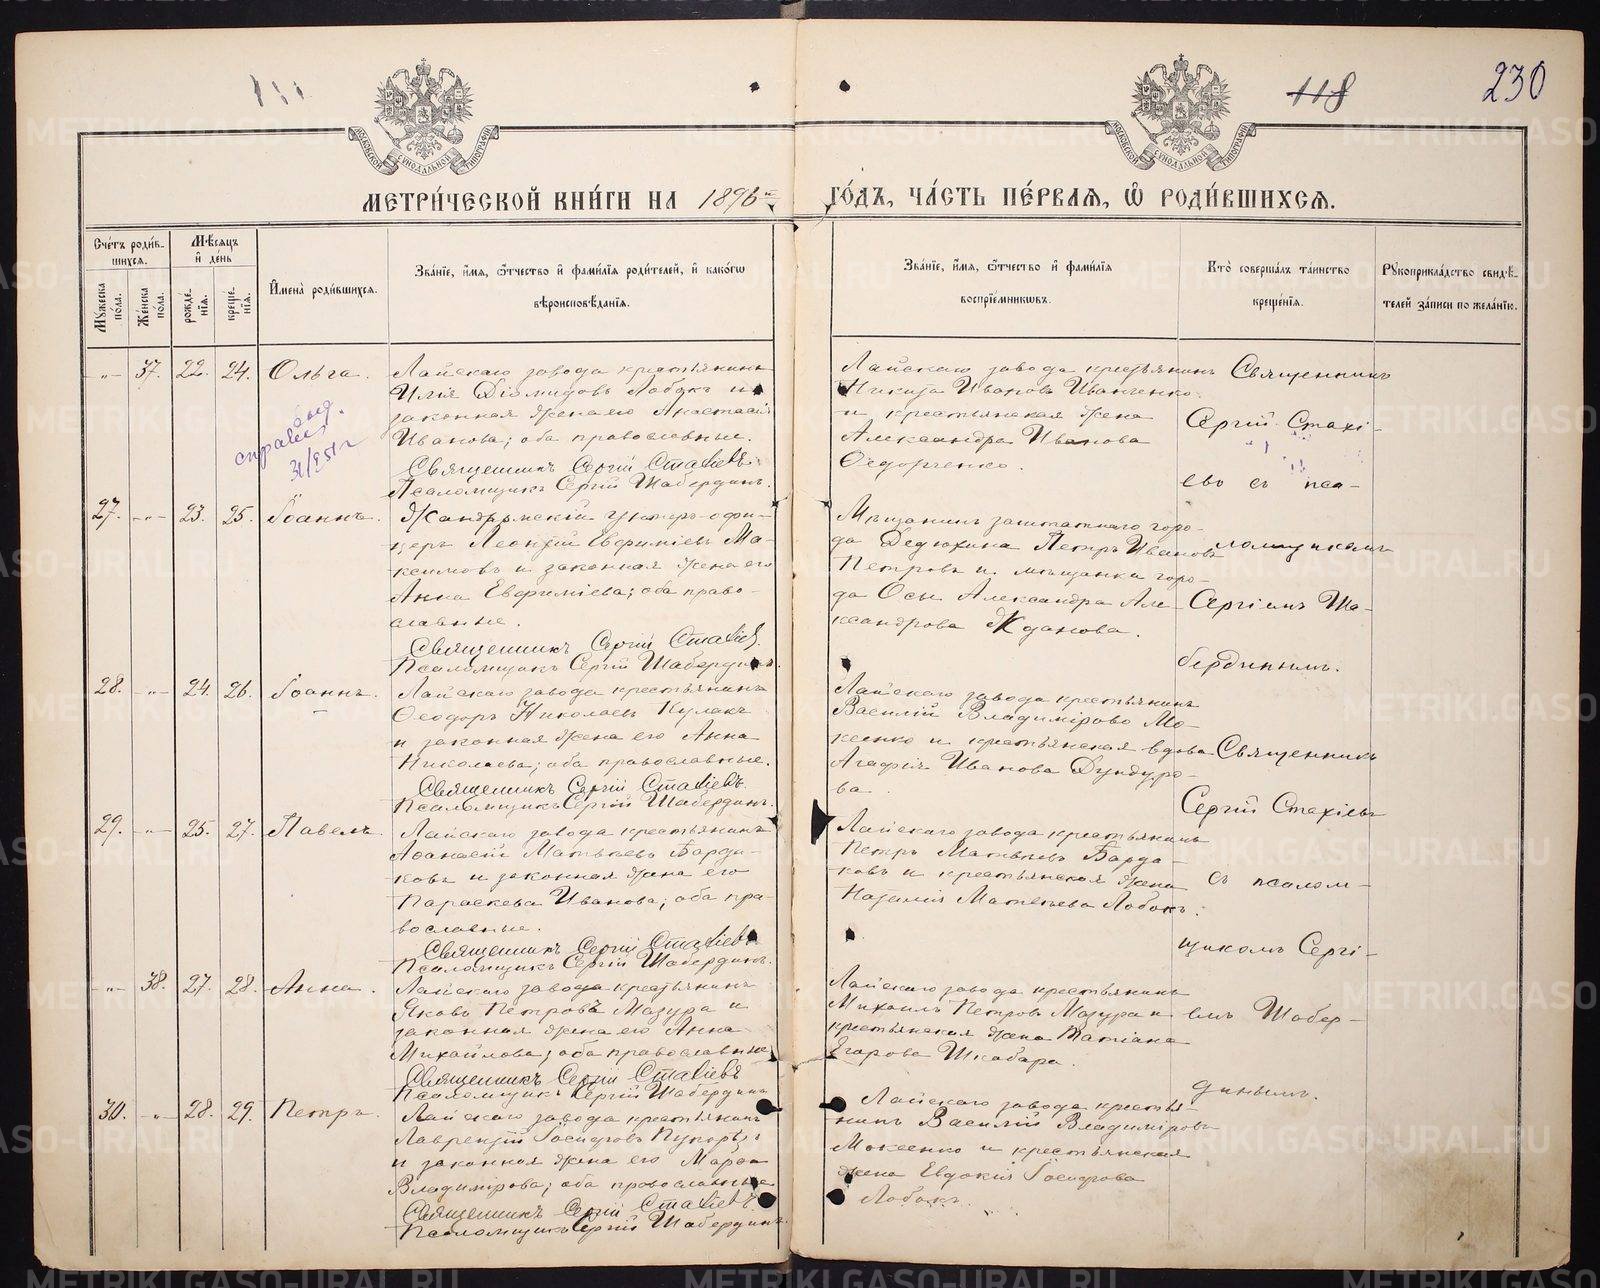 118
230
МОСКОВСКОЙ СѴНОДАЛЬНОЙ ТИПОГРАФІИ
МОСКОВСКОЙ СѴНОДАЛЬНОЙ ТИПОГРАФІИ
МЕТРИ́ЧЕСКОЙ КНИ́ГИ НА 1896 ГО́ДЪ, ЧА́СТЬ ПЕ́РВАЯ, Ѡ РОДИ́ВШИХСЯ.
Сче́тъ роди́в-
шихся.
Мꙋ́жеска по́ла.
Же́нска по́ла.
Мѣ́сяцъ
и҆ де́нь
рожде́-
нїя.
креще́-
нїя.
И҆мена̀ роди́вшихся.
Зва́нїе, и҆́мя, ѻ҆́тчество и҆ фами́лїя роди́телей, и҆ како́гѡ
вѣроисповѣ́данїя.
Зва́нїе, и҆́мя, ѻ҆́тчество и҆ фами́лїя
воспрїе́мникѡвъ.
Кто̀ соверша́лъ та́инство
креще́нїя.
Рꙋкоприкла́дство свидѣ́-
телей за́писи по жела́нїю.
-„- 37. 22. 24. Ольга.
Лайскаго завода крестьянинъ
Илія Діомидовъ Лобукъ и
законная жена его Анастасія
Иванова; оба православные.
Священникъ Сергій Стахіевъ
Псаломщикъ Сергій Шабердинъ.
Лайскаго завода крестьянинъ
Никита Ивановъ Иванченко
и крестьянская жена
Александра Иванова
Ѳедорченко.
27. -„- 23. 25. Іоаннъ.
Жандармскій унтеръ-офи-
церъ Леонтій Евфиміевъ Ма-
ксимовъ и законная жена его
Анна Евфиміева; оба право-
славные.
Священникъ Сергій Стахіевъ
Псаломщикъ Сергій Шабердинъ.
Мѣщанинъ заштатнаго горо-
да Дедюхина Петръ Ивановъ
Петровъ и мѣщанка горо-
да Осы Александра Але-
ксандрова Жданова.
28. -„- 24. 26. Іоаннъ.
Лайскаго завода крестьянинъ
Ѳеодоръ Николаевъ Кулакъ
и законная жена его Анна
Николаева; оба православные.
Священникъ Сергій Стахіевъ.
Псаломщикъ Сергій Шабердинъ.
Лайскаго завода крестьянинъ
Василій Владиміровъ Мо-
кеенко и крестьянская вдова
Агафія Иванова Дундуро-
ва.
29. -„- 25. 27. Павелъ.
Лайскаго завода крестьянинъ
Аѳанасій Матвѣевъ Барда-
ковъ и законная жена его
Параскева Иванова; оба пра-
вославные.
Священникъ Сергій Стахіевъ
Псаломщикъ Сергій Шабердинъ.
Лайскаго завода крестьянинъ
Петръ Матвѣевъ Барда-
ковъ и крестьянская жена
Наталія Матвѣева Лобокъ.
-„- 38. 27. 28. Анна.
Лайскаго завода крестьянинъ
Яковъ Петровъ Мазура и
законная жена его Анна
Михайлова; оба православные
Священникъ Сергій Стахіевъ
Псаломщикъ Сергій Шабердинъ
Лайскаго завода крестьянинъ
Михаилъ Петровъ Мазура и
крестьянская жена Татіана
Егорова Шкабара.
30. -„- 28. 29. Петръ.
Лайскаго завода крестьянинъ
Лаврентій Іосифовъ
и законная жена его Марѳа
Владимірова; оба православные
Священникъ Сергій Стахіевъ.
Псаломщикъ Сергій Шабердинъ.
Лайскаго завода крестья-
нинъ Василій Владиміровъ
Мокеенко и крестьянская
жена Евдокія Іосифова
Лобокъ.
Священникъ
Сергій Стахі-
евъ съ пса-
ломщикомъ
Сергіемъ Ша-
бердинымъ.
Священникъ
Сергій Стахіевъ
съ псалом-
щикомъ Сергі-
емъ Шабер-
динымъ.
METRIKI.GASO-URAL.RU